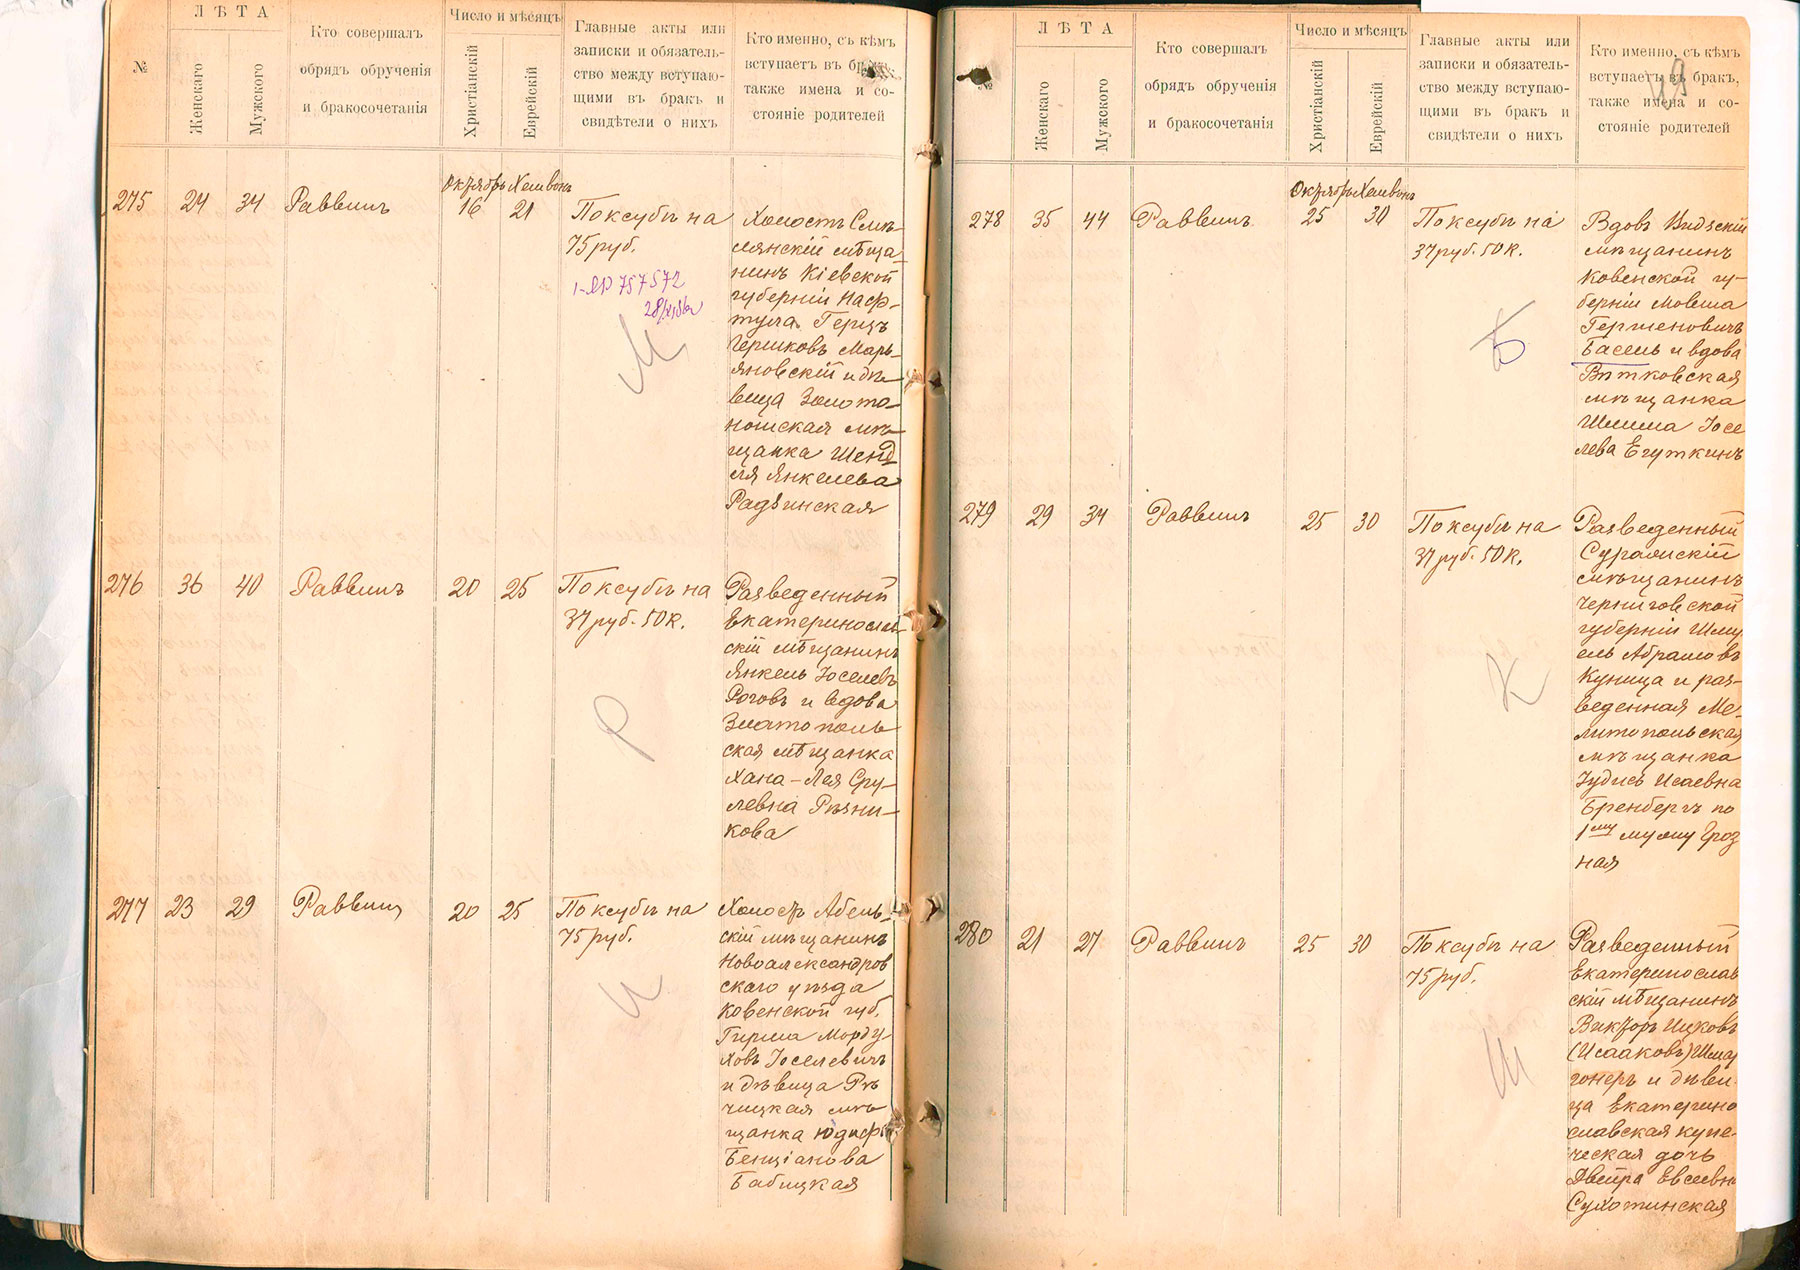 №
ЛѢТА
Женскаго
Мужского
Кто совершалъ
обрядъ обрученія
и бракосочетанія
Число и мѣсяцъ
Христіанскій
Еврейскій
Главные акты или
записки и обязатель-
ство между вступаю-
щими въ бракъ и
свидѣтели о нихъ
Кто именно, съ кѣмъ
вступаетъ въ бракъ,
также имена и со-
стояніе родителей
275
24
34
Раввинъ
Октябрь Хешвонъ
16
21
По ксубѣ на
75 руб.
1-ЯР 757572
М
Холостъ Смѣ-
лянскій мѣща-
нинъ Кіевской
губерніи Наф-
тула Герцъ
Гершковъ Марь-
яновскій и дѣ-
вица Золото-
ношская мѣ-
щанка Шенд-
ля Янкелева
Радзинская
276
36
40
Раввинъ
20
25
По ксубѣ на
37 руб. 50 к.
Р
Разведенный
Екатеринослав-
скій мѣщанинъ
Янкель Іоселевъ
Роговъ и вдова
Златополь-
ская мѣщанка
Хана-Лея Сру-
левна Рѣзни-
кова
277
23
29
Раввинъ
20
25
По ксубѣ на
75 руб.
И
Холостъ Абель-
скій мѣщанинъ
Новоалександров
скаго уѣзда
Ковенской губ.
Гирша Морду-
ховъ Іоселевичъ
и дѣвица Рѣ-
чицкая мѣ-
щанка Юдифь
Бенціанова
Бабицкая
№
ЛѢТА
Женскаго
Мужского
Кто совершалъ
обрядъ обрученія
и бракосочетанія
Число и мѣсяцъ
Христіанскій
Еврейскій
Главные акты или
записки и обязатель-
ство между вступаю-
щими въ бракъ и
свидѣтели о нихъ
Кто именно, съ кѣмъ
вступаетъ въ бракъ,
также имена и со-
стояніе родителей
278
35
44
Раввинъ
Октябрь Хешвонъ
25
30
По ксубѣ на
37 руб. 50 к.
Б
Вдовъ Видзскій
мѣщанинъ
Ковенской гу-
берніи Мовша
Гершеновичъ
Басель и вдова
Витковская
мѣщанка
Шишма Іосе
лева Егуткинъ
279
29
34
Раввинъ
25
30
По ксубѣ на
37 руб. 50 к.
К
Разведенный
Суражскій
мѣщанинъ
Черниговской
губерніи Шму-
ель Абрамовъ
Куница и раз-
веденная Ме-
литопольская
мѣщанка
Іудись Исаевна
Бренбергъ по
1му мужу Гроз
ная
280
21
27
Раввинъ
25
30
По ксубѣ на
75 руб.
Ш
Разведенный
Екатеринослав
скій мѣщанинъ
Викторъ Ицковъ
(Исааковъ) Шма
гонеръ и дѣви-
ца Екатерино
славская купе-
ческая дочь
Двейра Евсеевна
Сухотинская